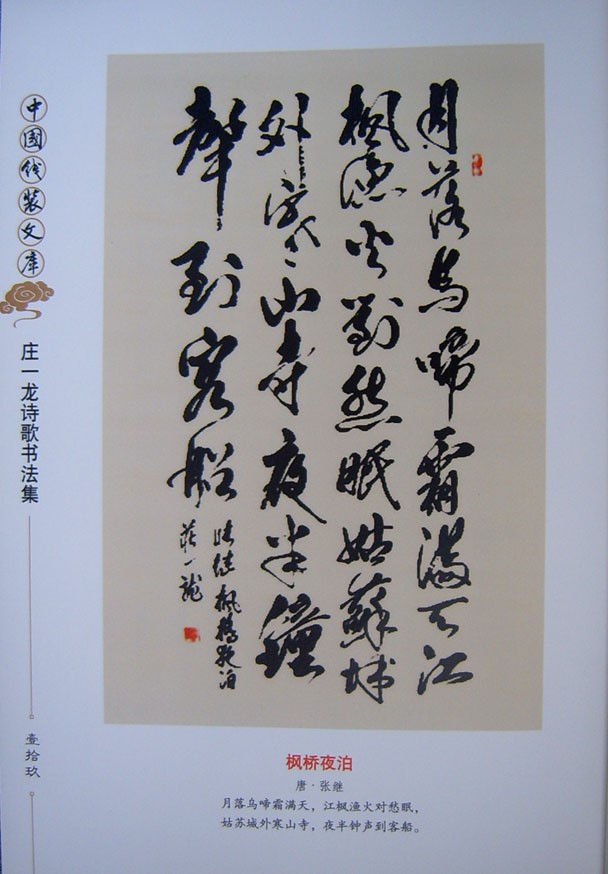 中国线装文库
庄一龙诗歌书法集
壹拾玖
月落烏啼霜滿天江
楓漁火對愁眠姑蘇城
外寒山寺夜半鐘
聲到客船
張繼楓橋夜泊
莊一龍
枫桥夜泊
唐·张继
月落乌啼霜满天，江枫渔火对愁眠，
姑苏城外寒山寺，夜半钟声到客船。